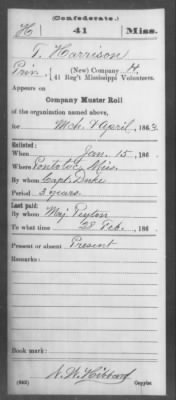 (Confederate.)
H 41 Miss.
T. Harrison
Priv., (New) Company H,
41 Reg't Mississippi Volunteers.
Appears on
Company Muster Roll
of the organization named above,
for Mch & April, 186
Enlisted:
When Jan. 15, 186 .
Where Pontotoc, Miss.
By whom Capt. Duke
Period 3 years.
Last paid:
By whom Maj Peyton
To what time 28 Feb., 186 .
Present or absent Present
Remarks:
Book mark:
N. W. Hibbard
(642) Copyist.